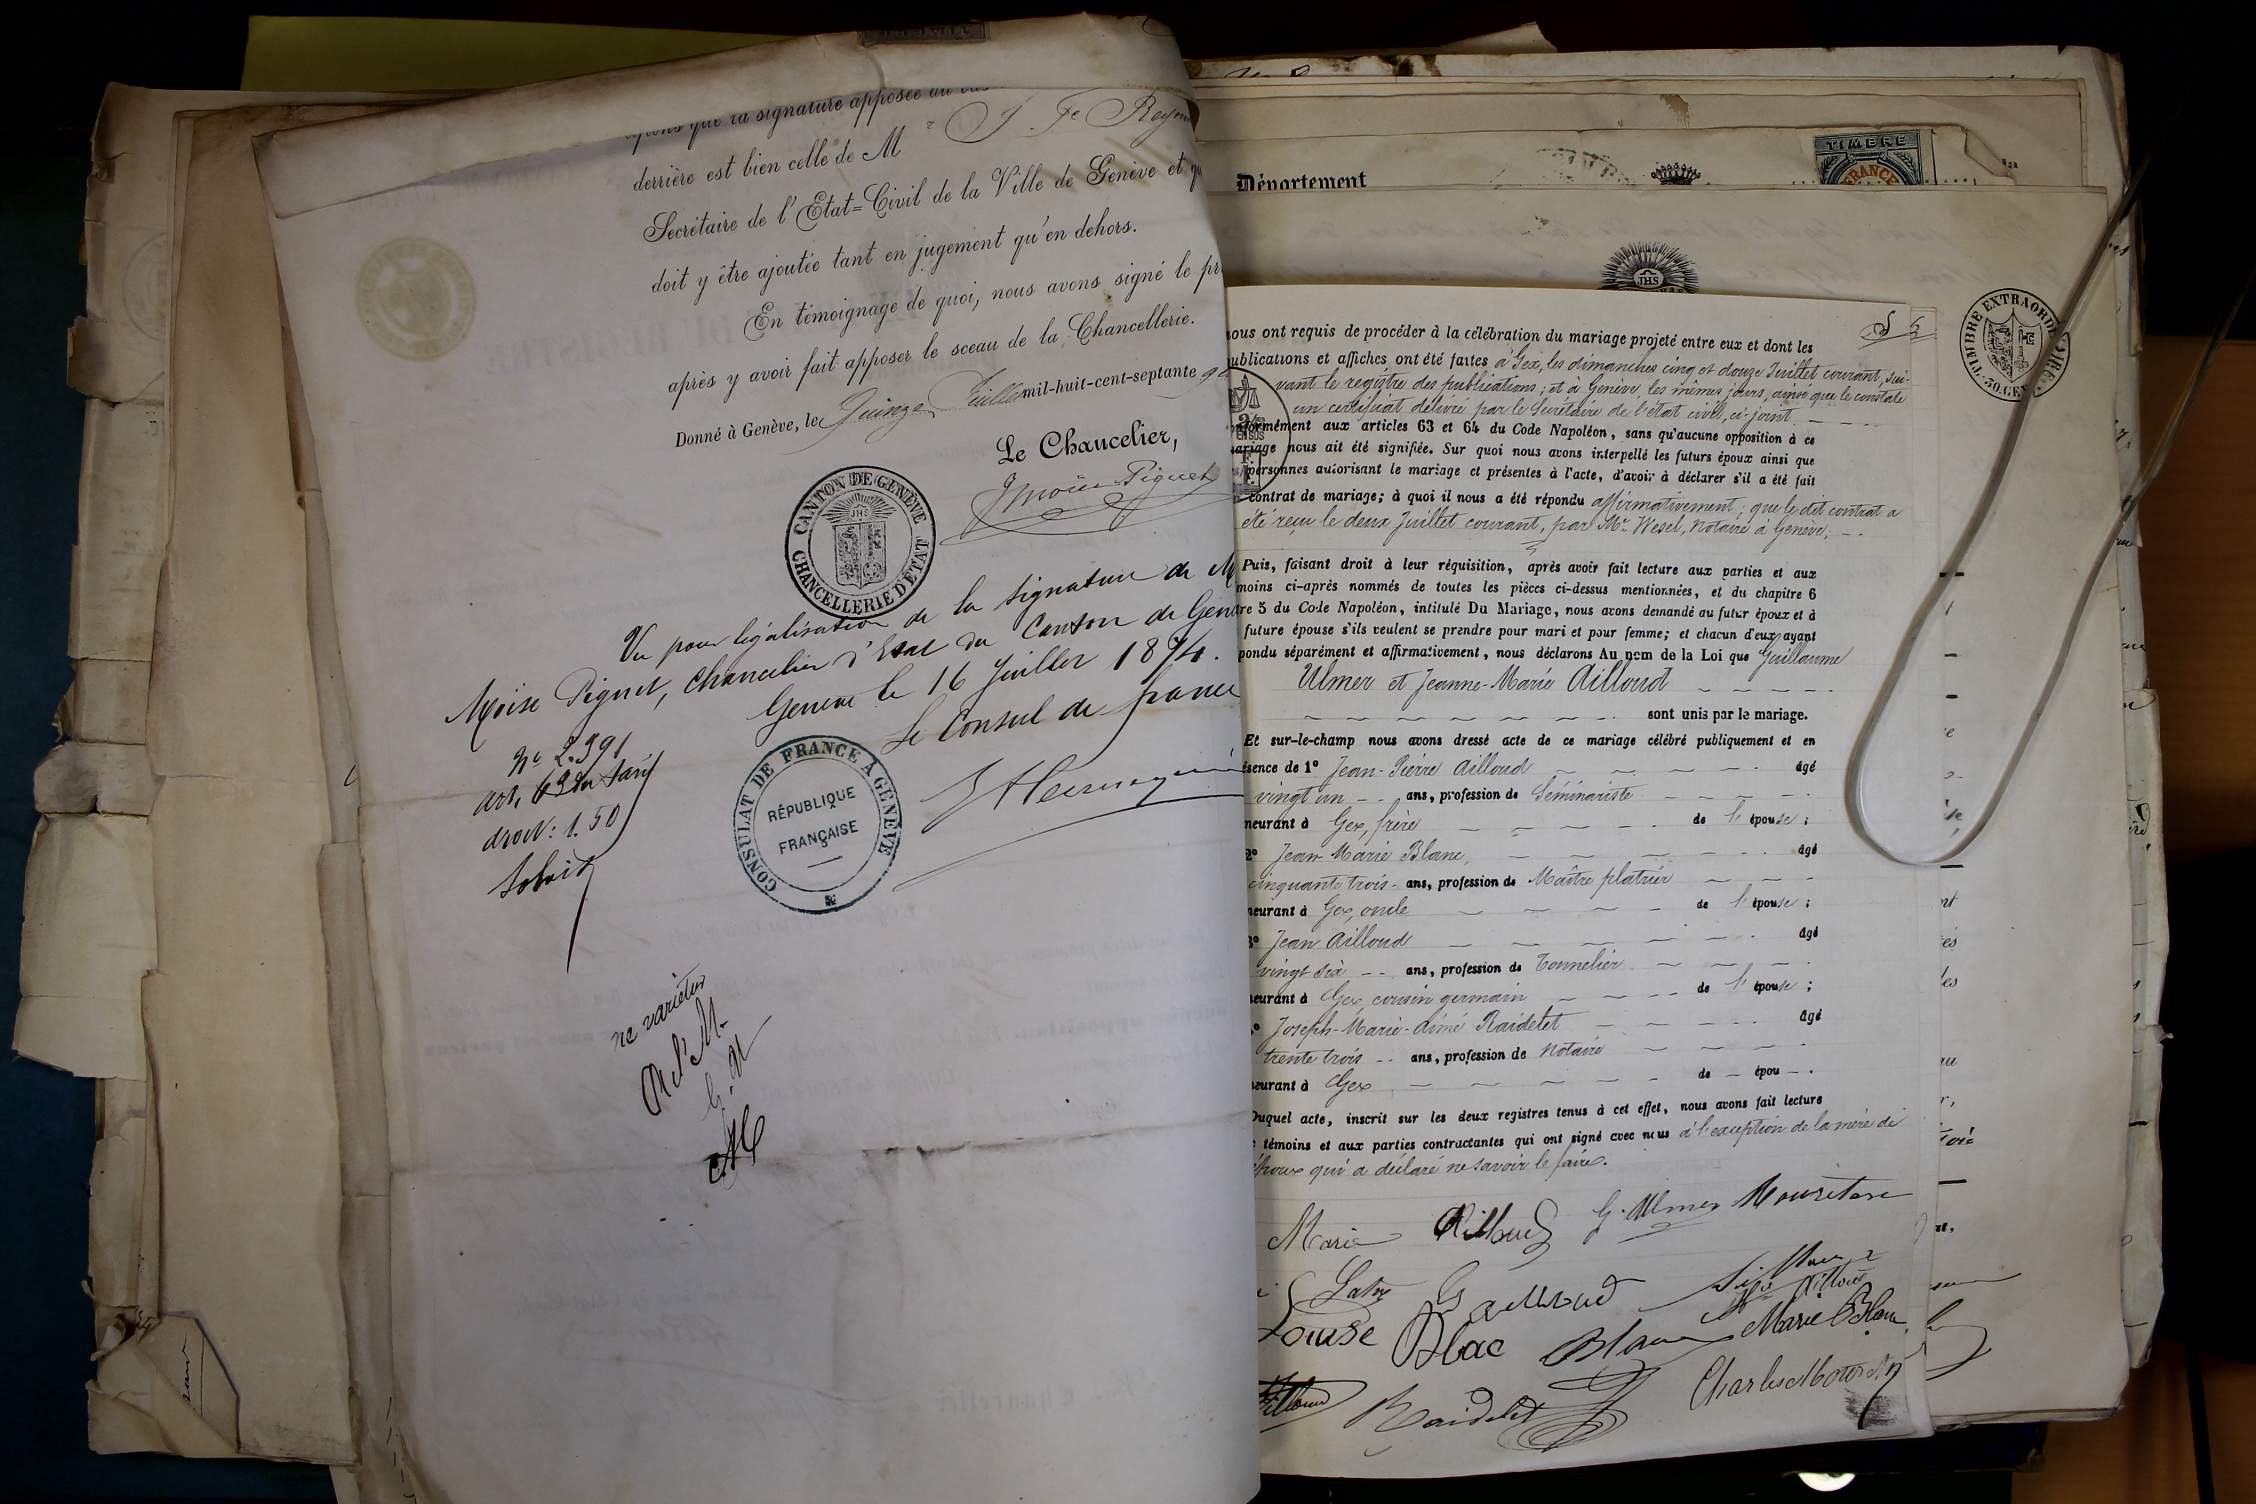 que la signature apposée au
derrière est bien celle de M
Secrétaire de l'Etat=Civil de la Ville de Genève et
doit y être ajoutée tant en jugement qu'en dehors.
En témoignage de quoi, nous avons signé le
après y avoir fait apposer le sceau de la Chancellerie.
Donné à Genève, le Quinze Juillet mil-huit-cent-septante
Le Chancelier,
Moïse Piguet
CANTON DE GENÈVE
JHS
CHANCELLERIE D'ETAT
Vu pour légalisation de la signature de M
Moïse Piguet, Chancelier d'Etat du Canton de Genève
Genève le 16 Juillet 1874.
Le Consul de France
No 2.391
art. 63 du tarif
droit: 1.50
CONSULAT DE FRANCE A GENÈVE
RÉPUBLIQUE
FRANÇAISE
ne varietur
Département
TIMBRE
FRANCE
JHS
TIMBRE EXTRAORD
50.CEN
nous ont requis de procéder à la célébration du mariage projeté entre eux et dont les
publications et affiches ont été faites à Gex, les dimanches cinq et douze Juillet courant, sui-
vant le registre des publications; et à Genève, les mêmes jours, ainsi que le constate
un certificat délivré par le Secrétaire de l'état civil, ci-joint.
onformément aux articles 63 et 64 du Code Napoléon, sans qu'aucune opposition à ce
mariage nous ait été signifiée. Sur quoi nous avons interpellé les futurs époux ainsi que
personnes autorisant le mariage et présentes à l'acte, d'avoir à déclarer s'il a été fait
contrat de mariage; à quoi il nous a été répondu affirmativement; que le dit contrat a
été reçu le deux Juillet courant, par Me Wesel, Notaire à Genève;
Puis, faisant droit à leur réquisition, après avoir fait lecture aux parties et aux
moins ci-après nommés de toutes les pièces ci-dessus mentionnées, et du chapitre 6
re 5 du Code Napoléon, intitulé Du Mariage, nous avons demandé au futur époux et à
future épouse s'ils veulent se prendre pour mari et pour femme; et chacun d'eux ayant
pondu séparément et affirmativement, nous déclarons Au nom de la Loi que Guillaume
Ulmer et Jeanne-Marie Ailloud
sont unis par le mariage.
Et sur-le-champ nous avons dressé acte de ce mariage célébré publiquement et en
ésence de 1° Jean-Pierre Ailloud âgé
vingt un ans, profession de Séminariste
meurant à Gex, frère de l'épouse;
2° Jean Marie Blanc, âgé
cinquante trois ans, profession de Maître plâtrier
meurant à Gex, oncle de l'épouse;
3° Jean Ailloud âgé
vingt six ans, profession de Tonnelier
meurant à Gex, cousin germain de l'épouse;
Joseph-Marie-Aimé Raidelet âgé
trente trois ans, profession de Notaire
meurant à Gex de épou
Duquel acte, inscrit sur les deux registres tenus à cet effet, nous avons fait lecture
témoins et aux parties contractantes qui ont signé avec nous à l'exception de la mère de
l'époux qui a déclaré ne savoir le faire.
Marie Ailloud G. Ulmer
Louise Blac Blanc Marie Blanc
Raidelet Charles